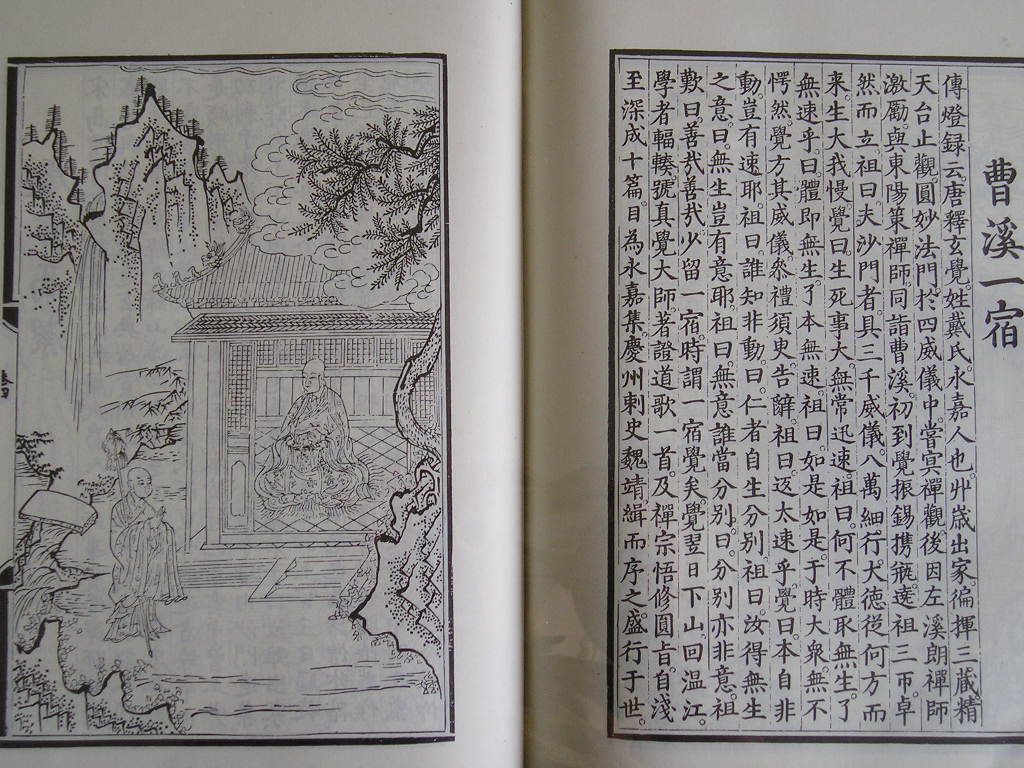 曹溪一宿
傳燈錄云唐釋玄覺。姓戴氏。永嘉人也。丱歲出家徧揮三藏。精
天台止觀。圓妙法門。於四威儀中。嘗冥禪觀。後因左溪朗禪師
激勵。與東陽策禪師。同詣曹溪。初到覺振錫携瓶。遶祖三帀。卓
然而立。祖曰。夫沙門者。具三千威儀。八萬細行。大德從何方而
来。生大我慢。覺曰。生死事大。無常迅速。祖曰。何不體取無生。了
無速乎。曰。體即無生。了本無速。祖曰。如是如是。于時大衆。無不
愕然。覺方具威儀。叅禮須臾告辭。祖曰。返大速乎。覺曰。本自非
動。豈有速耶。祖曰。誰知非動。曰。仁者自生分別。祖曰。汝得無生
之意。曰。無生豈有意耶。祖曰。無意誰當分別。曰。分別亦非意。祖
歎曰。善㢤善㢤。少留一宿。時謂一宿覺矣。覺翌日下山。回温江。
學者輻輳。號真覺大師。著證道歌一首。及禪宗悟修圓旨。自淺
至深。成十篇。目為永嘉集。慶州刺史魏靖。緝而序之。盛行于世。